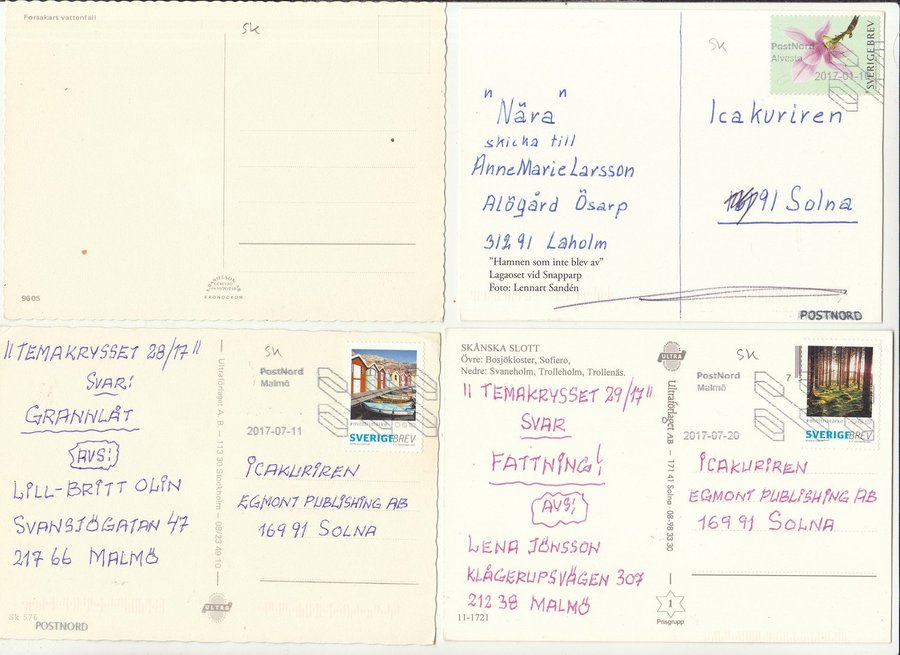 Forsakars vattenfall
SK
9605
KRONOCKOM
SK
PostNord
Alvesta
SVERIGE BREV
"Nära"
skicka till
AnneMarie Larsson
Alögård Ösarp
31291 Laholm
"Hamnen som inte blev av"
Lagaoset vid Snapparp
Foto: Lennart Sandén
Icakuriren
91 Solna
POSTNORD
"TEMAKRYSSET 28/17"
SVAR:
GRANNLÅT
AVS:
LILL-BRITT OLIN
SVANSJÖGATAN 47
217 66 MALMÖ
Sk 576
POSTNORD
Ultraförlaget A. B. – 113 30 Stockholm – 08/23 49 10
ULTRA
SK
PostNord
Malmö
2017-07-11
SVERIGE BREV
ICAKURIREN
EGMONT PUBLISHING AB
169 91 SOLNA
SKÅNSKA SLOTT
Övre: Bosjökloster, Sofiero,
Nedre: Svaneholm, Trolleholm, Trollenäs.
"TEMAKRYSSET 29/17"
SVAR
FATTNING!
AVS;
LENA JÖNSSON
KLÅGERUPSVÄGEN 307
212 38 MALMÖ
11-1721
ULTRA
Ultraförlaget AB – 171 41 Solna 08-98 33 30
1
Prisgrupp
SK
PostNord
Malmö
7
2017-07-20
SVERIGE BREV
ICAKURIREN
EGMONT PUBLISHING AB
169 91 SOLNA